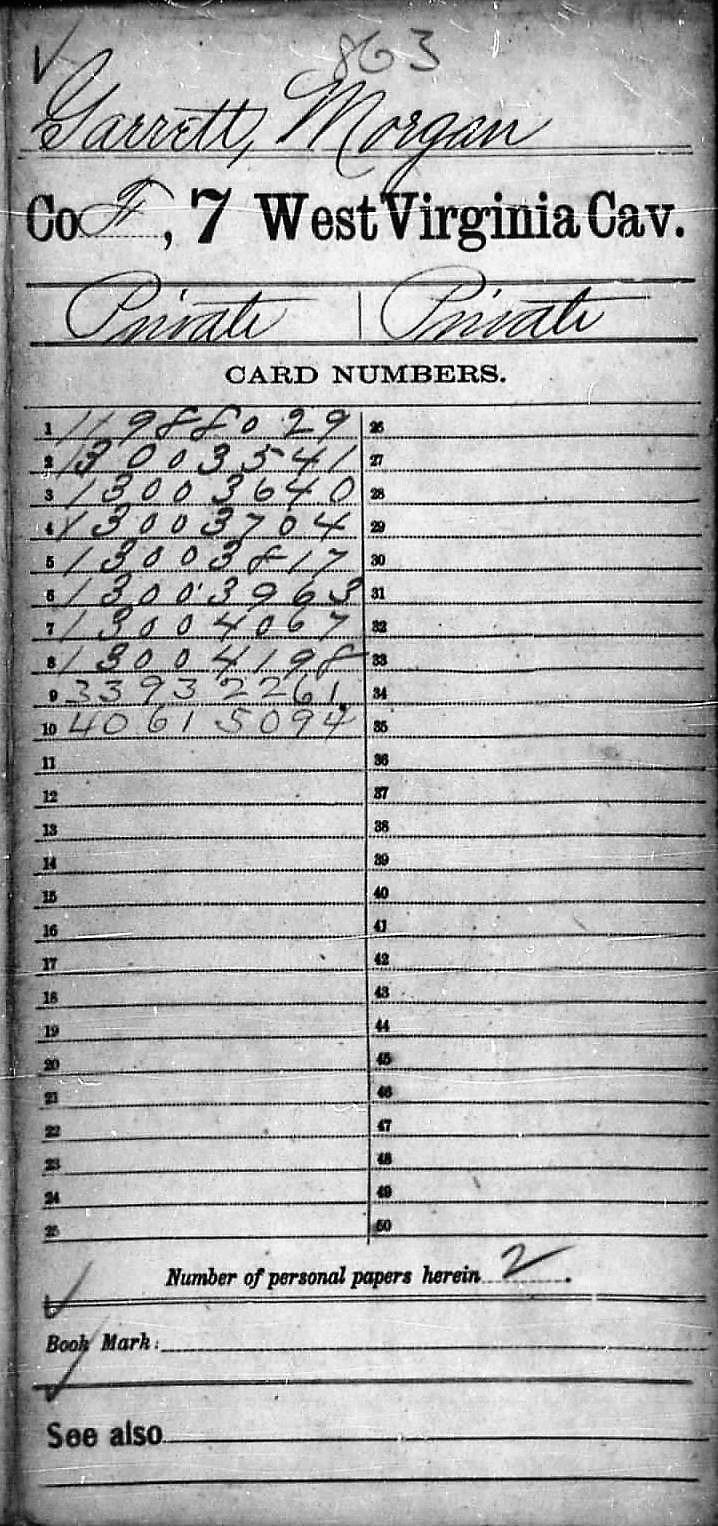 863
Garrett, Morgan
Co F, 7 West Virginia Cav.
Private | Private
CARD NUMBERS.
1 11988029 26
2 13003541 27
3 13003640 28
4 13003704 29
5 13003817 30
6 13003963 31
7 13004067 32
8 13004198 33
9 33932261 34
10 40615094 35
11 36
12 37
13 38
14 39
15 40
16 41
17 42
18 43
19 44
20 45
21 46
22 47
23 48
24 49
25 50
Number of personal papers herein 2.
Book Mark:
See also